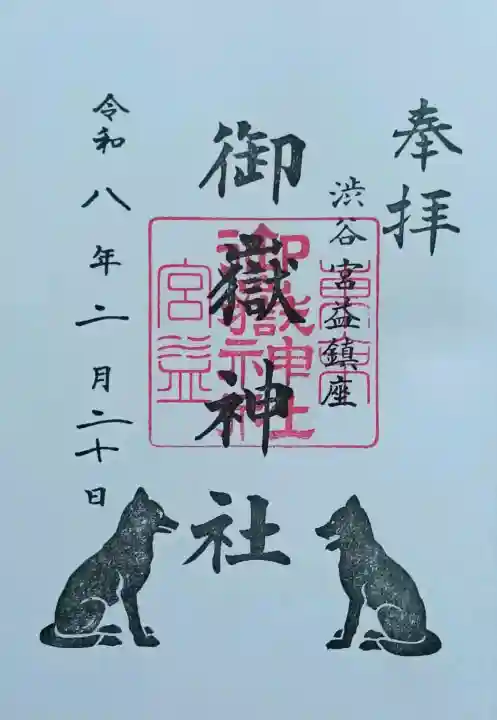 奉拝
渋谷宮益鎮座
御嶽神社
令和八年二月二十日
東京
御嶽神社
宮益